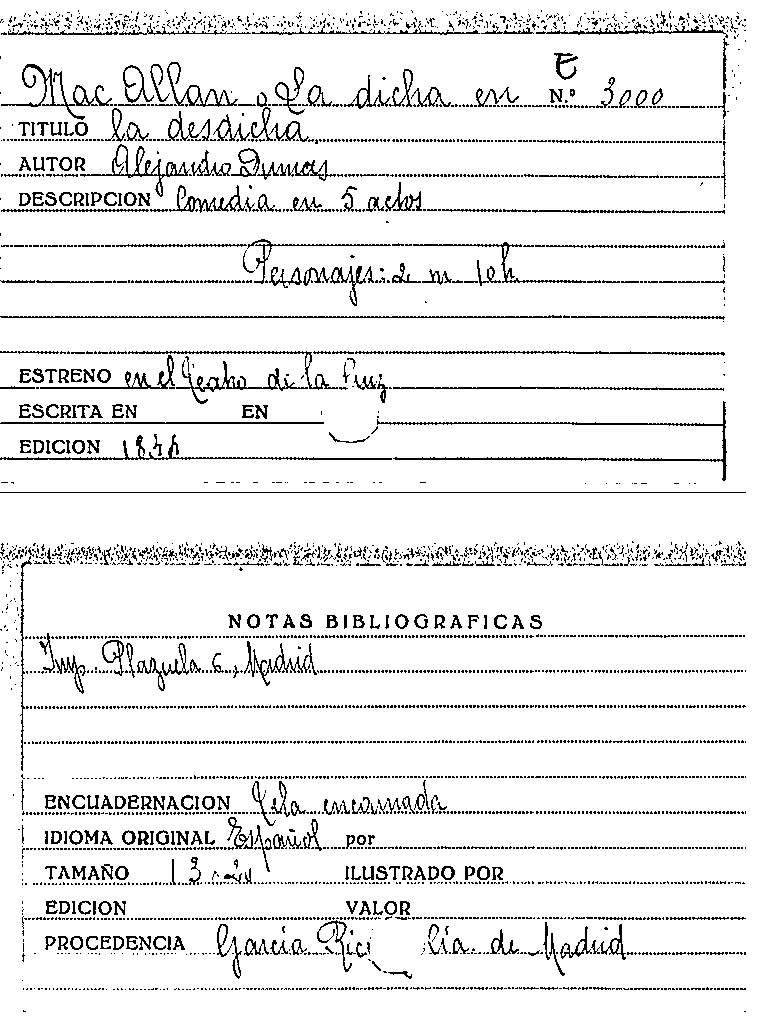 E
Mac Allan o La dicha en N.º 3000
TITULO la desdicha
AUTOR Alejandro Dumas
DESCRIPCION Comedia en 5 actos
Personajes: 2 m 10 h
ESTRENO en el Teatro de la Cruz
ESCRITA EN EN
EDICION
NOTAS BIBLIOGRAFICAS
Imp. Plazuela 6, Madrid
ENCUADERNACION Tela encarnada
IDIOMA ORIGINAL Español por
TAMAÑO ILUSTRADO POR
EDICION VALOR
PROCEDENCIA García Rico Cía. de Madrid